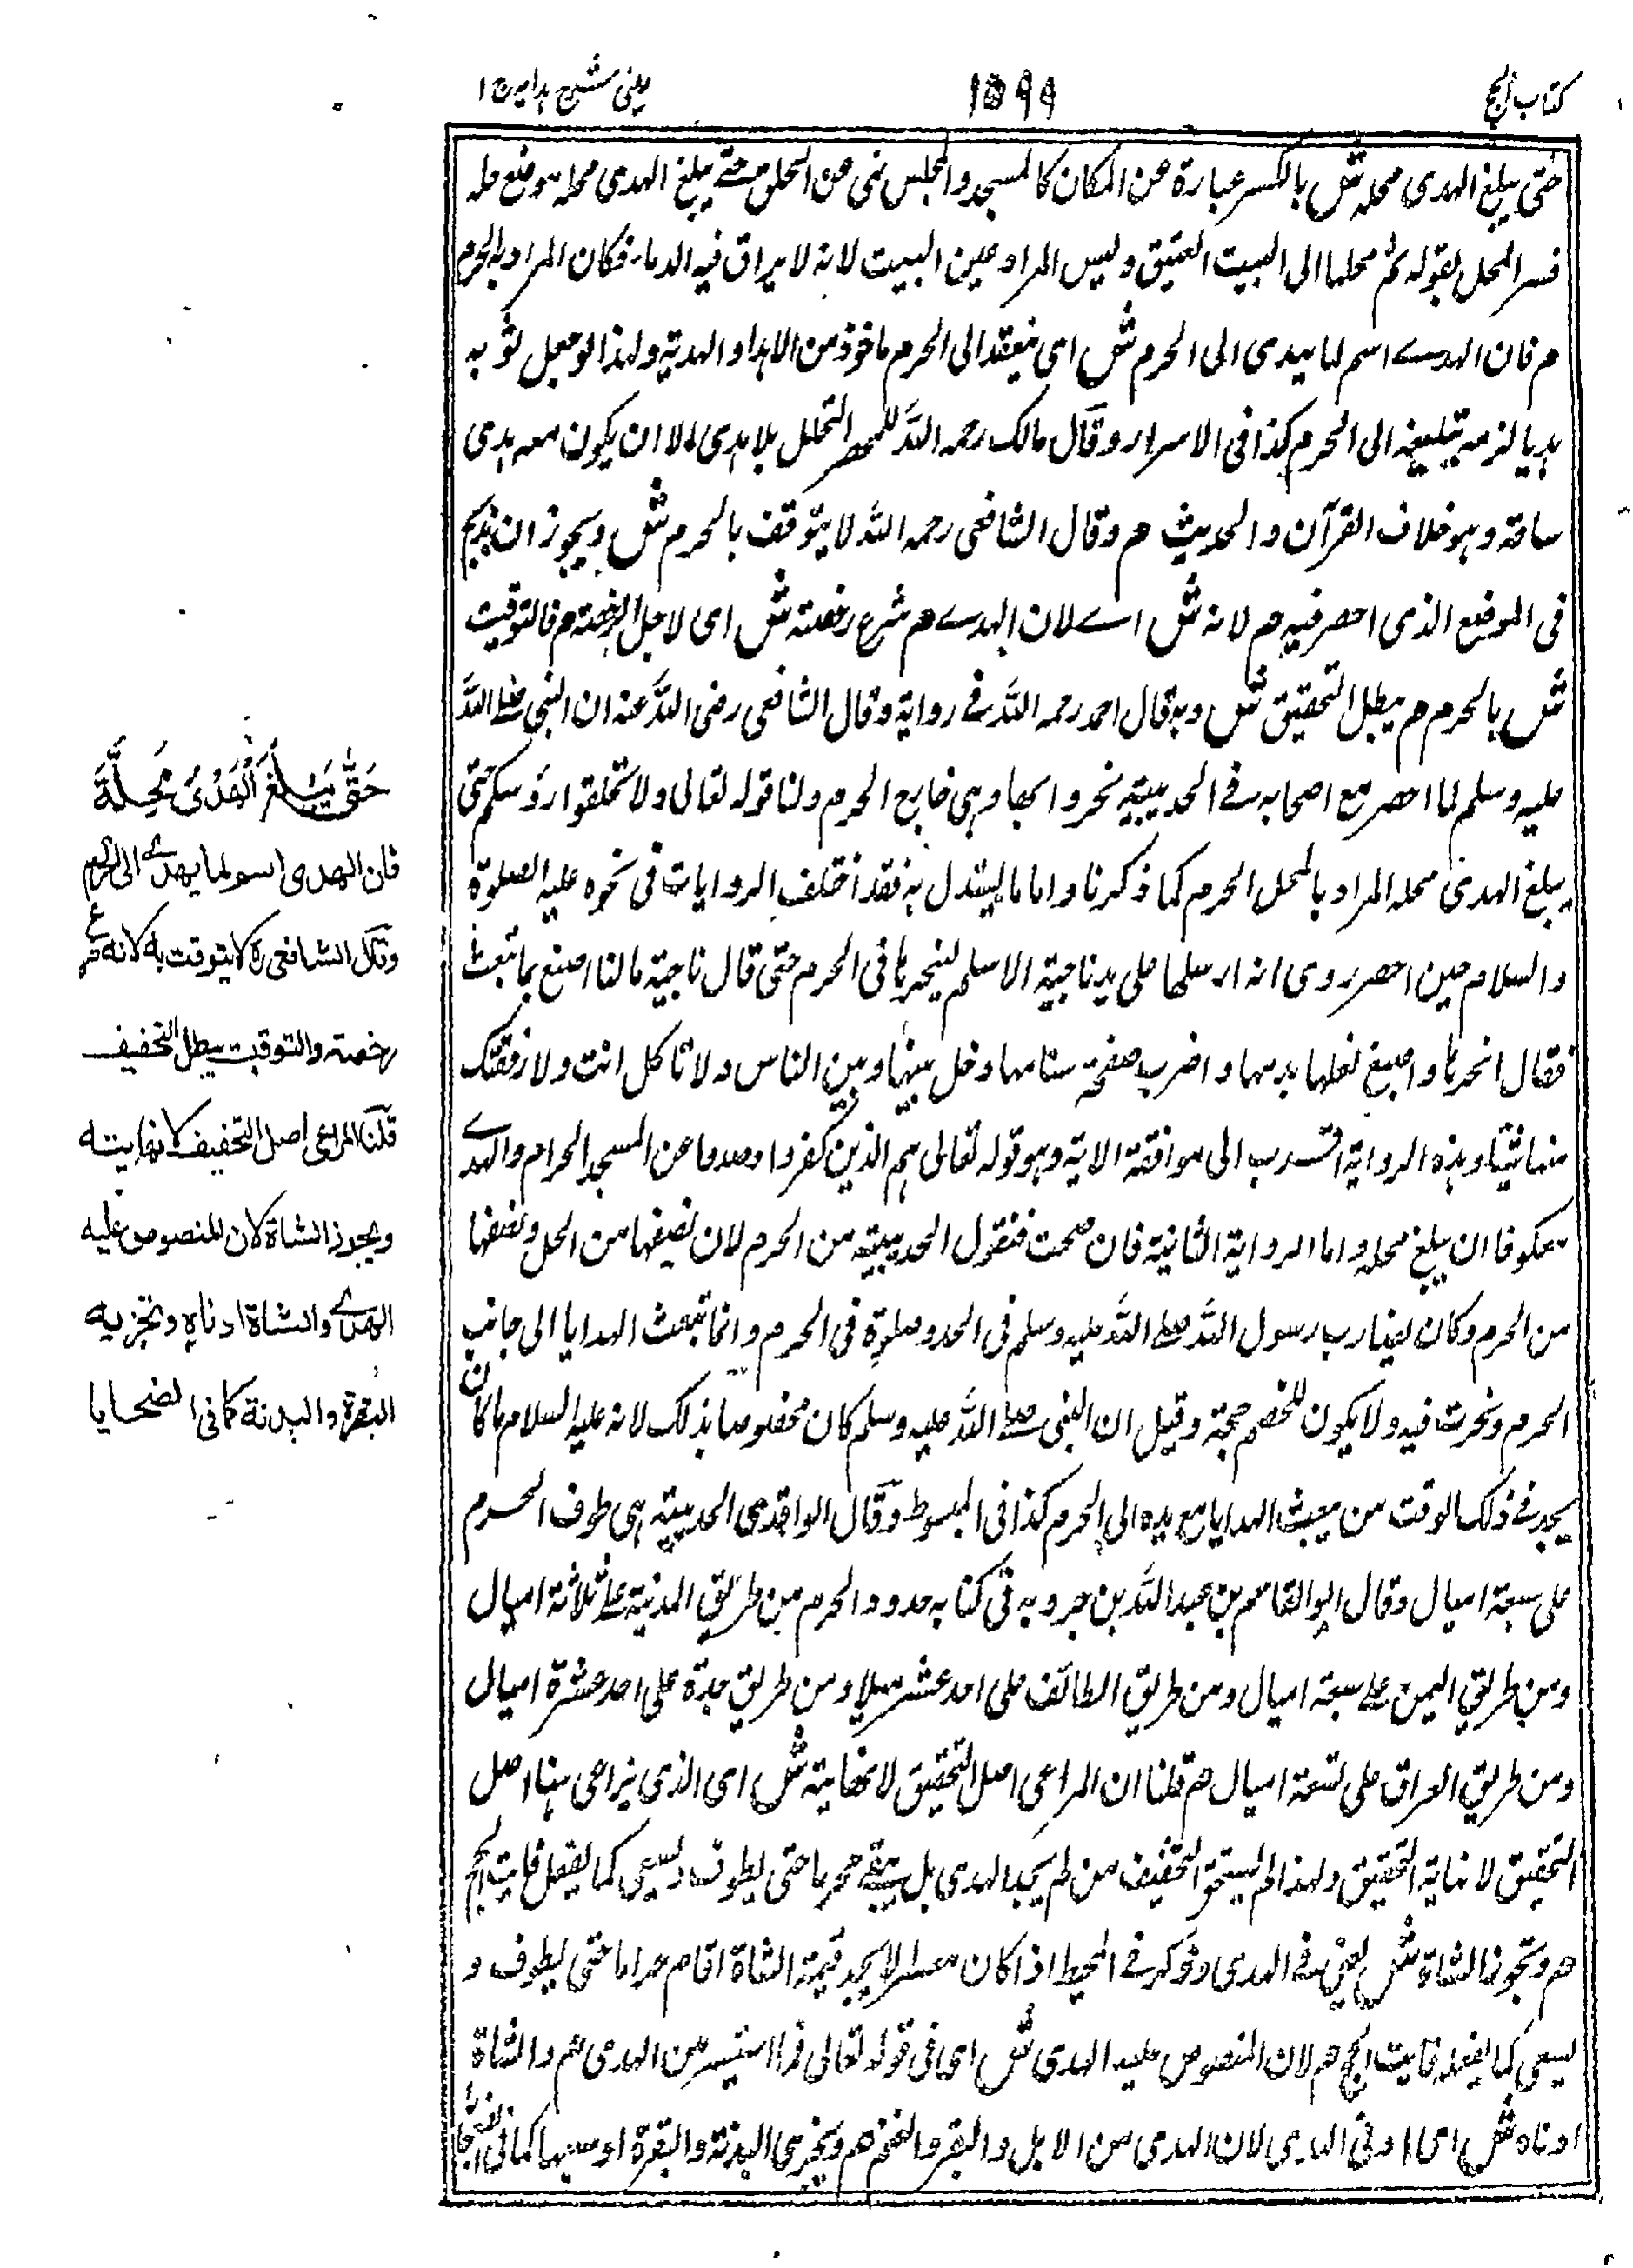 كتاب الحج
۱۵۹۹
عينی شرح ہدایہ ج ۱
حتى يبلغ الهدى محله ش بالكسر عبارة عن المكان كالمسجد والمجلس نهى عن الحلق حتے يبلغ الهدى محله موضع حله
فسر المحل بقوله ثم محلها الى البيت العتيق وليس المراد عين البيت لانه لا يراق فيه الدماء فكان المراد به الحرم
م فان الهدے اسم لما يهدى الى الحرم ش اى ينقد الى الحرم ماخوذ من الاهدا والهدية ولهذا لو جعل ثوبه
هديا لزمه تبليغه الى الحرم كذا فى الاسرار وقال مالك رحمه الله للمحصر التحلل بلا هدى الا ان يكون معه هدى
ساقه وهو خلاف القرآن والحديث م وقال الشافعى رحمه الله لا يتوقف بالحرم ش ويجوز ان يذبح
فى الموضع الذى احصر فيه م لانه ش اے لان الهدے م شرع رخصة ش اى لاجل الرخصة م فالتوقيت
ش بالحرم م يبطل التحقيق ش وبه قال احمد رحمه الله فے رواية وقال الشافعى رضى الله عنه ان النبى صلے الله
عليه وسلم لما احصر مع اصحابه فے الحديبية نحروا بها وهى خارج الحرم ولنا قوله تعالى ولا تحلقوا رؤسكم حتى
يبلغ الهدى محله المراد بالمحل الحرم كما ذكرنا واما ما يستدل به فقد اختلف الروايات فى نحوه عليه الصلوة
والسلام حين احصر روى انه ارسلها على يد ناجية الاسلم لينحرها فى الحرم حتى قال ناجية مالنا اصنع بما تبعث
فقال انحرها واصبغ نعلها بدمها واضرب صفحة سنامها وخل بينها وبين الناس ولا تاكل انت ولا رفقتك
منها شيئا وهذه الرواية اقرب الى موافقة الاية وهو قوله تعالى هم الذين كفروا وصدوا عن المسجد الحرام والهدے
معكوفا ان يبلغ محله واما الرواية الثانية فان صحت فنقول الحديبية من الحرم لان نصيفها من الحل ونصفها
من الحرم وكان مضارب رسول الله صلے الله عليه وسلم فى الحل وصلوة فى الحرم وانما تبعث الهدايا الى جانب
الحرم ونحرت فيه ولا يكون للخصم حجة وقيل ان النبى صلے الله عليه وسلم كان مخصوصا بذلك لانه عليه السلام ما كان
يجد فے ذلك الوقت من يبعث الهدايا مع يده الى الحرم كذا فى المبسوط وقال الواقدى الحديبية هى طرف الحرم
على سبعة اميال وقال ابو القاسم بن عبد الله بن جروبه فى كتابه حدود الحرم من طريق المدنية علے ثلاثة اميال
ومن طريق اليمن علے سبعة اميال ومن طريق الطائف على احد عشر ميلا ومن طريق جدة على احد عشرة اميال
ومن طريق العراق على تسعة اميال م قلنا ان المراعى اصل التحقيق لا نهايته ش اى الذى يراعى هنا اصل
التحقيق لا نهاية التحقيق ولهذا لم يستحق التخفيف من لم يجد الهدى بل يبقے محرما حتى يطوف ويسعى كما يفعل فايت الحج
م وتجوز الشاة ش يعنى فے الهدى وذكر فے المحيط اذا كان معسرا لا يجد قيمة الشاة اقام حراما حتى يطوف و
يسعى كما يفعله فايت الحج م لان المنصوص عليه الهدى ش اى فى قوله تعالى فما استيسر من الهدى م والشاة
ادناه ش اى ادنى الهدى لان الهدى من الابل والبقر والغنم م ويجزى البدنة والبقرة او سبعها كما فى الضحايا
حَتّٰى يَبْلُغَ الْهَدْىُ مَحِلَّهٗ
فان الهدى اسم لما يهدے الى الحرم
وقال الشافعى رہ لا يتوقت به لانه شرع
رخصة والتوقيت يبطل التخفيف
قلنا المراعى اصل التخفيف لا نهايته
ويجوز الشاة لان المنصوص عليه
الهدے والشاة ادناه وتجزيه
البقرة والبدنة كما فى الضحايا